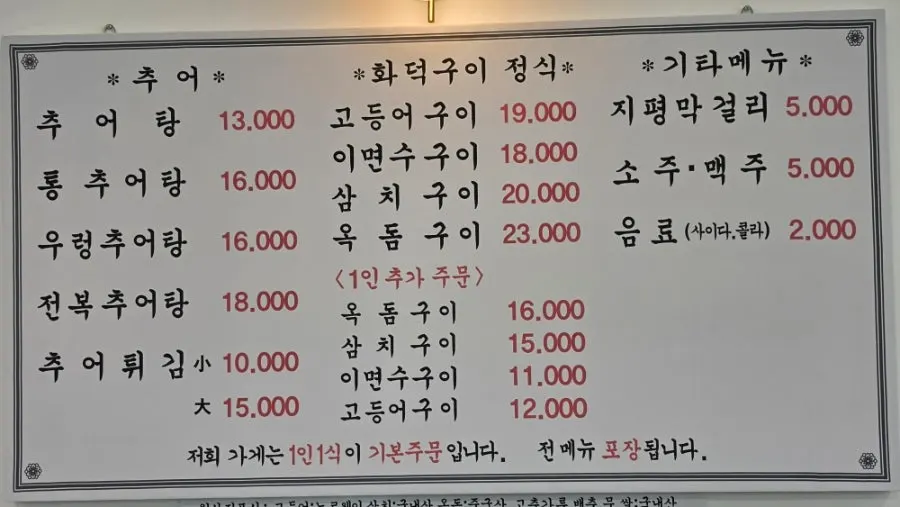 *추어*
추어탕 13.000
통추어탕 16.000
우렁추어탕 16.000
전복추어탕 18.000
추어튀김 小 10.000
大 15.000
*화덕구이 정식*
고등어구이 19.000
이면수구이 18.000
삼치구이 20.000
옥돔구이 23.000
<1인 추가 주문>
옥돔구이 16.000
삼치구이 15.000
이면수구이 11.000
고등어구이 12.000
*기타메뉴*
지평막걸리 5.000
소주·맥주 5.000
음료(사이다.콜라) 2.000
저희 가게는 1인1식이 기본주문입니다. 전메뉴 포장됩니다.
고등어:노르웨이 삼치:국내산 옥돔:중국산 고춧가루 배추 무 쌀:국내산